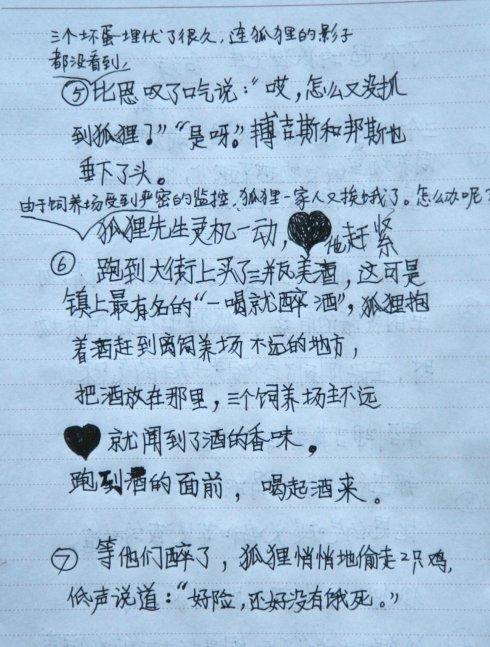 三个坏蛋埋伏了很久，连狐狸的影子
都没看到，
⑤比恩叹了口气说：“哎，怎么又没抓
到狐狸？”“是呀。”博吉斯和邦斯也
垂下了头。
由于饲养场受到严密的监控，狐狸一家人又挨饿了。怎么办呢？
狐狸先生灵机一动，他赶紧
⑥跑到大街上买了三瓶美酒，这可是
镇上最有名的“一喝就醉酒”，狐狸抱
着酒赶到离饲养场不远的地方，
把酒放在那里，三个饲养场主不远
就闻到了酒的香味。
跑到酒的面前，喝起酒来。
⑦等他们醉了，狐狸悄悄地偷走2只鸡，
低声说道：“好险，还好没有饿死。”